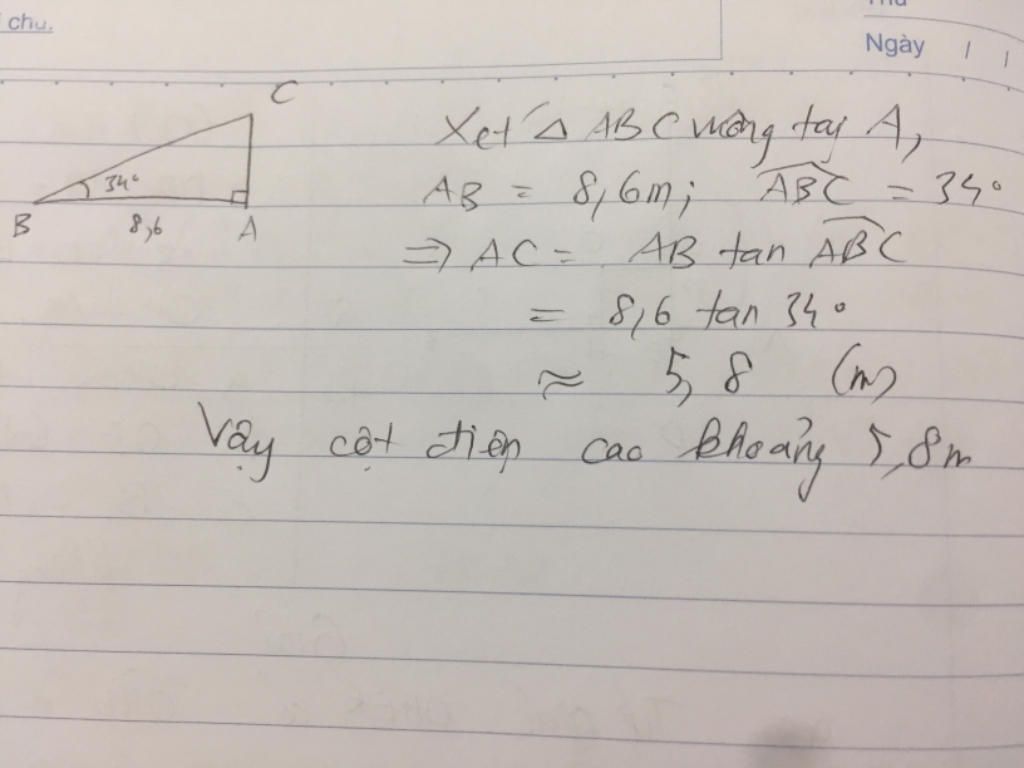 chu.
Ngày / /
C
34°
B 8,6 A
Xét △ ABC vuông tại A,
AB = 8,6m; \widehat{ABC} = 34°
⇒ AC = AB tan \widehat{ABC}
= 8,6 tan 34°
≈ 5,8 (m)
Vậy cột điện cao khoảng 5,8m